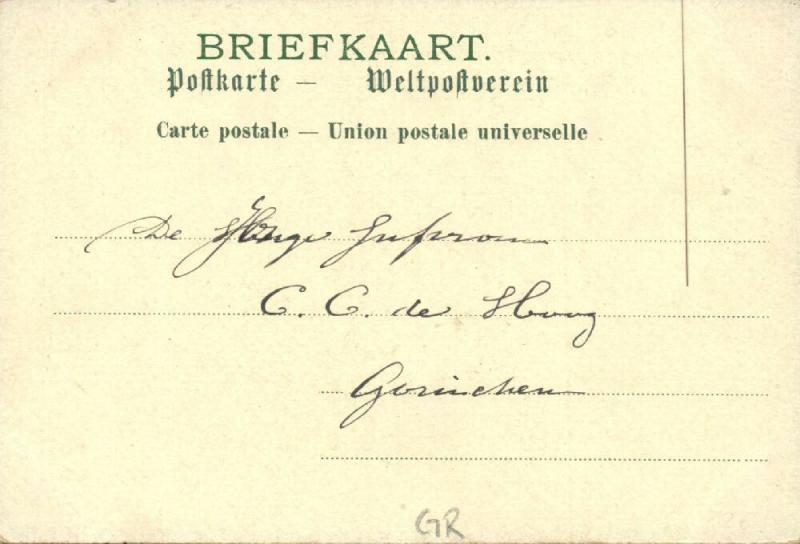 BRIEFKAART.
Postkarte — Weltpostverein
Carte postale — Union postale universelle
De
C. C. de Hoog
Gorinchem
GR